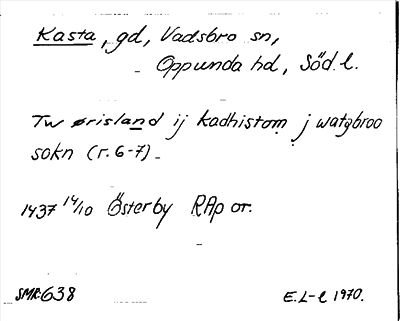 Kasta, gd, Vadsbro sn,
Oppunda hd, Söd. l.
Tw ørisland ij kadhistom j watzbroo
sokn (r. 6-7).
1437 14/10 Österby RAp or.
SMR:638 E. L-l 1970.